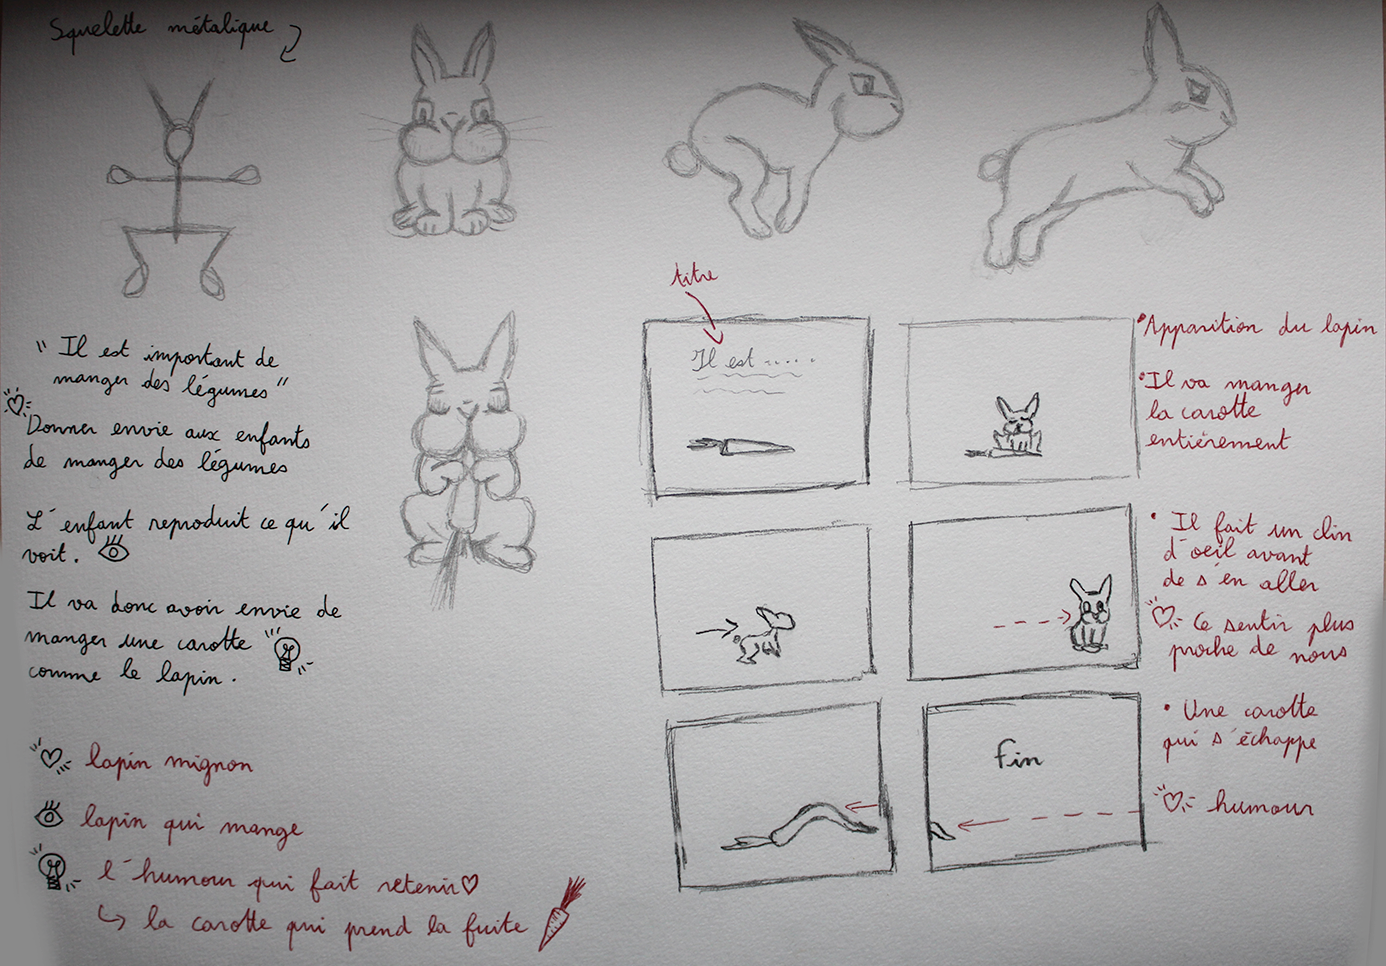 Squelette métalique
" Il est important de
manger des légumes "
Donner envie aux enfants
de manger des légumes
L'enfant reproduit ce qu'il
voit.
Il va donc avoir envie de
manger une carotte
comme le lapin.
lapin mignon
lapin qui mange
l'humour qui fait retenir
la carotte qui prend la fuite
titre
Il est .....
• Apparition du lapin
• Il va manger
la carotte
entièrement
• Il fait un clin
d'oeil avant
de s'en aller
Ce sentir plus
proche de nous
• Une carotte
qui s'échappe
fin
humour